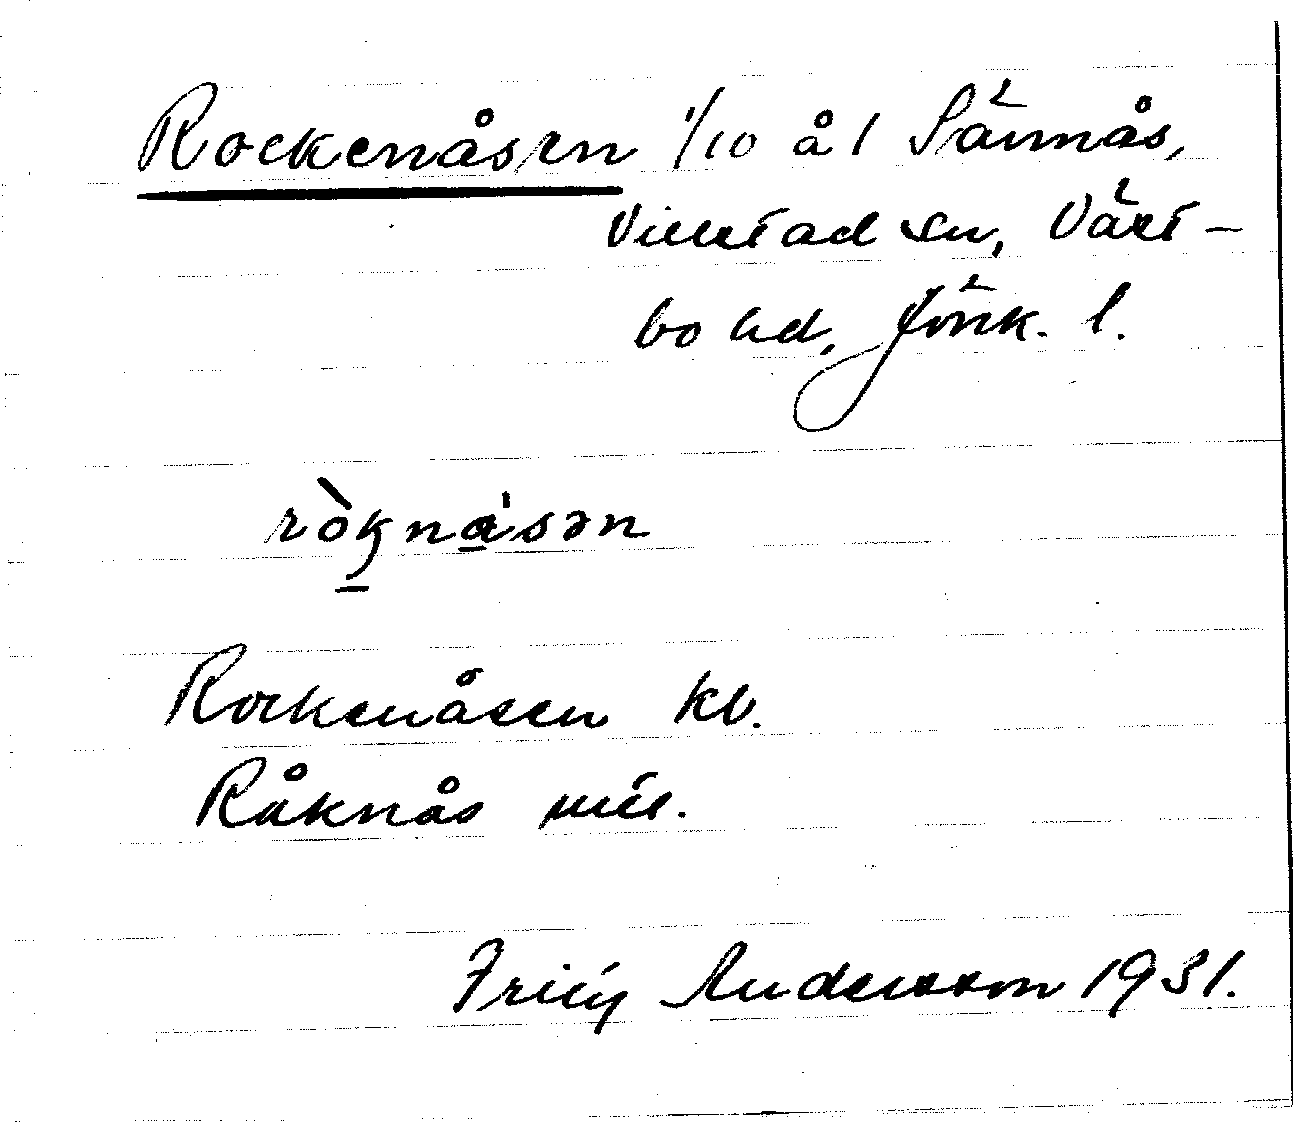 Rockenåsen 1/10 å 1 Sännås,
Villstad sn, Väst-
bo hd, Jönk. l.
ròknás​ən
Rockenåsen kb.
Råknås mtl.
Frity Andersson 1931.